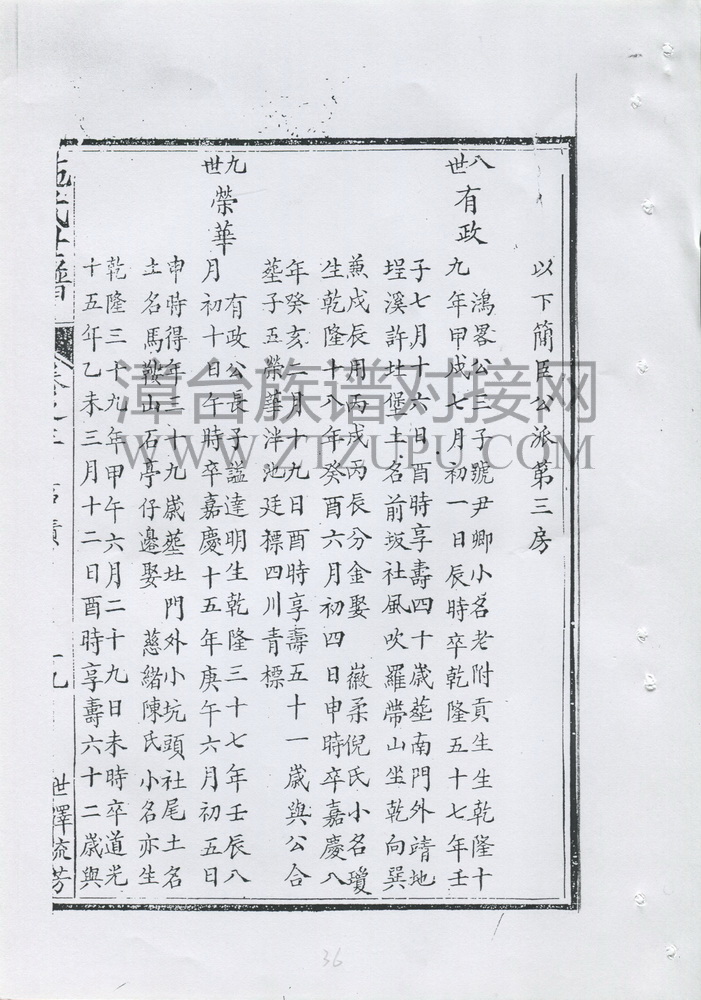 以下簡臣公派第三房
八世
有政
鴻畧公三子號尹卿小名老附貢生生乾隆十
九年甲戌七月初一日辰時卒乾隆五十七年壬
子七月十六日酉時享壽四十歲塟南門外靖地
埕溪許坵堡土名前坂社風吹羅帶山坐乾向巽
兼戌辰用丙戌丙辰分金娶 徽柔倪氏小名瓊
生乾隆十八年癸酉六月初四日申時卒嘉慶八
年癸亥二月十九日酉時享壽五十一歲與公合
塟子五榮華泮池廷標四川青標
九世
榮華
有政公長子謚達明生乾隆三十七年壬辰八
月初十日午時卒嘉慶十五年庚午六月初五日
申時得年三十九歲塟坵門外小坑頭社尾土名
土名馬鞍山石亭仔邊娶 慈緒陳氏小名亦生
乾隆三十九年甲午六月二十九日未時卒道光
十五年乙未三月十二日酉時享壽六十二歲與
氏世譜
卷之三
世澤流芳
漳台族谱对接网
WWW.ZTZUPU.COM
36